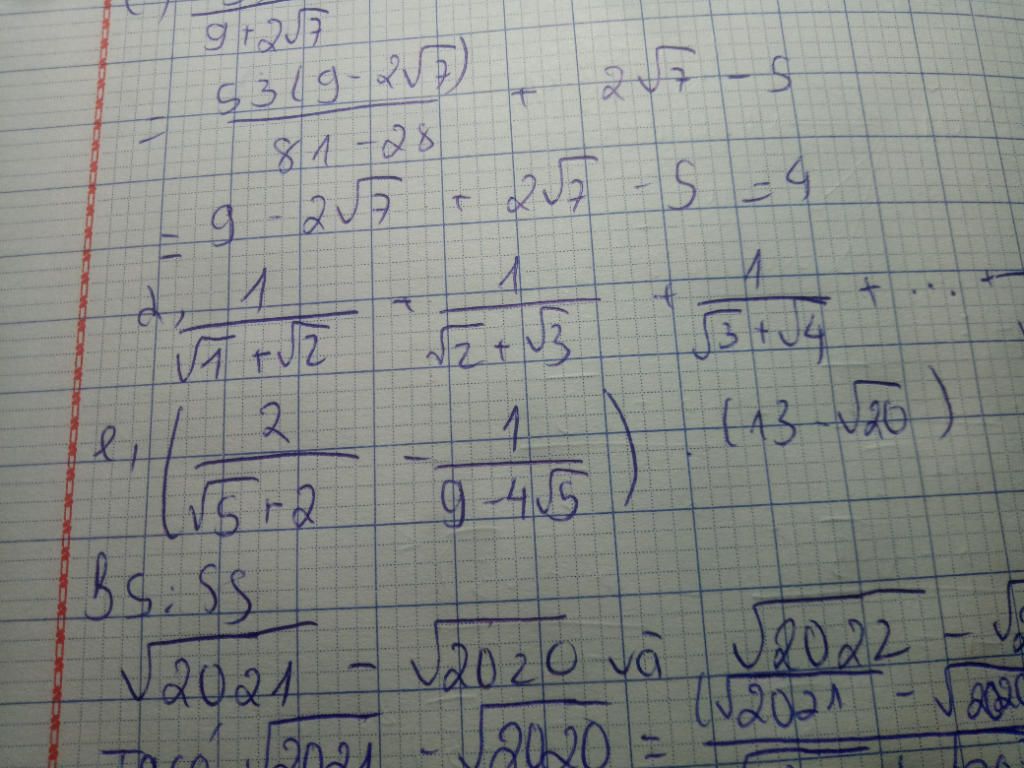 9+2√7
= 53(9-2√7)/(81-28) + 2√7 - 5
= 9 - 2√7 + 2√7 - 5 = 4
d, 1/(√1+√2) + 1/(√2+√3) + 1/(√3+√4) + ... +
e, (2/(√5+2) - 1/(9-4√5)) . (13-√20)
B5: SS
√2021 - √2020 và √2022 - √
Ta có √2021 - √2020 = (√2021 - √2020